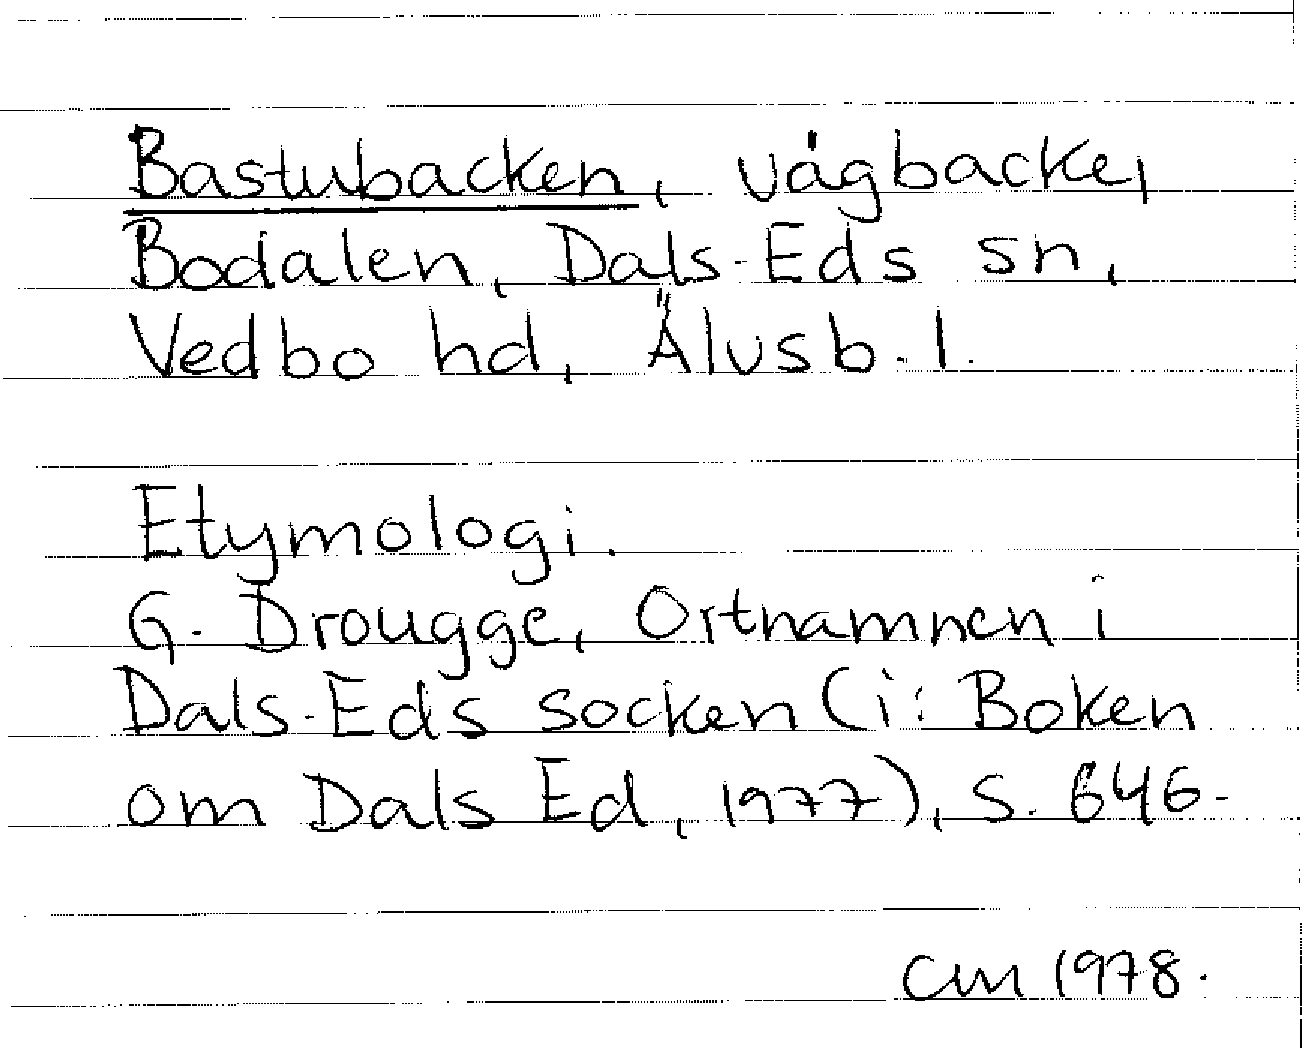 Bastubacken, vägbacke,
Bodalen, Dals-Eds sn,
Vedbo hd, Älvsb. l.
Etymologi.
G. Drougge, Ortnamnen i
Dals-Eds socken (i: Boken
om Dals Ed, 1977), s. 646.
CM 1978.